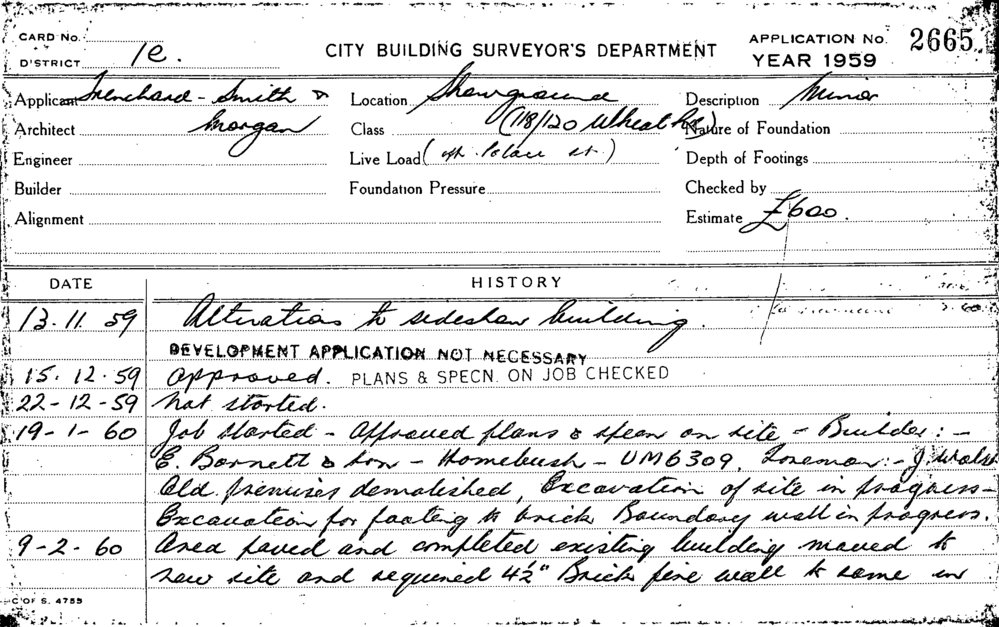 CARD No. CITY BUILDING SURVEYOR'S DEPARTMENT APPLICATION No. 2665
DISTRICT 1e. YEAR 1959
Applicant Trenchard-Smith & Location Showground Description Minor
Architect Morgan Class (118/120 Wheat Rd) Nature of Foundation
Engineer Live Load (opp. Palace St.) Depth of Footings
Builder Foundation Pressure Checked by
Alignment Estimate £600.
DATE HISTORY
13.11.59 Alterations to sideshow building.
DEVELOPMENT APPLICATION NOT NECESSARY
15.12.59 Approved. PLANS & SPECN. ON JOB CHECKED
22-12-59 Not started.
19-1-60 Job started - Approved plans & specn on site - Builder:-
E. Barnett & Son - Homebush - UM6309, Foreman:- J. Walsh
Old premises demolished, Excavation of site in progress-
Excavation for footing to brick Boundary wall in progress.
9-2-60 Area paved and completed existing building moved to
new site and required 4½" Brick fire wall to same in
C OF S. 4755